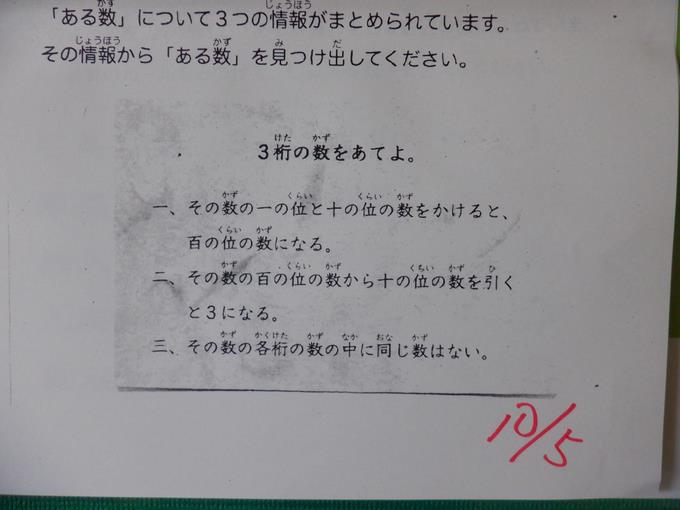 「ある数」について３つの情報がまとめられています。
その情報から「ある数」を見つけ出してください。
３桁の数をあてよ。
一、その数の一の位と十の位の数をかけると、
百の位の数になる。
二、その数の百の位の数から十の位の数を引く
と３になる。
三、その数の各桁の数の中に同じ数はない。
10/5